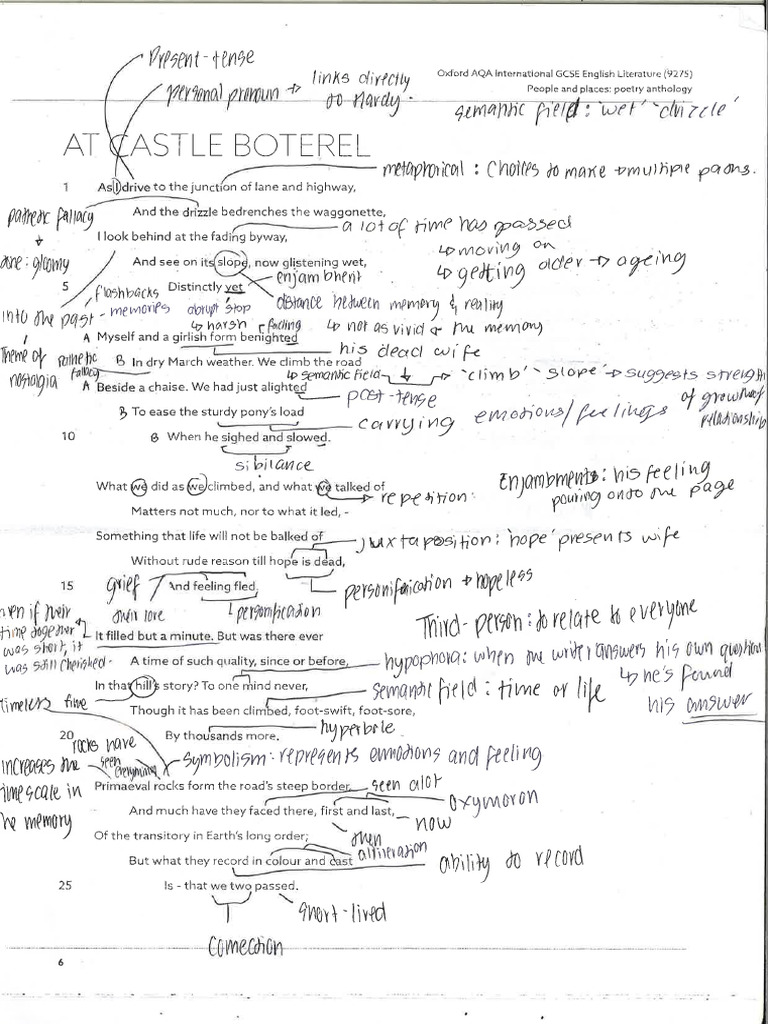 Present-tense
personal pronoun → links directly to Hardy.
Oxford AQA International GCSE English Literature (9275)
People and places: poetry anthology
semantic field: 'wet' 'drizzle'
AT CASTLE BOTEREL
metaphorical: Choices to make → multiple paths.
1 As I drive to the junction of lane and highway,
pathetic fallacy
And the drizzle bedrenches the waggonette,
a lot of time has passed
I look behind at the fading byway,
↳ moving on
tone: gloomy
And see on its slope, now glistening wet,
↳ getting older → ageing
enjambment
5 Distinctly yet
flashbacks
distance between memory & reality
into the past - memories abrupt stop
↳ harsh fading ↳ not as vivid & the memory
A Myself and a girlish form benighted
his dead wife
Theme of nostalgia
Pathetic fallacy
B In dry March weather. We climb the road
↳ semantic field → 'climb' 'slope' → suggests strength of growth of relationship
A Beside a chaise. We had just alighted
past-tense
B To ease the sturdy pony's load
carrying emotions/feelings
10 B When he sighed and slowed.
sibilance
Enjambments: his feeling pouring onto the page
What we did as we climbed, and what we talked of
repetition:
Matters not much, nor to what it led, -
Something that life will not be balked of
juxtaposition: 'hope' presents wife
Without rude reason till hope is dead,
grief
personification → hopeless
15 And feeling fled.
their love
personification
Third-person: to relate to everyone
even if their time together was short, it was still cherished.
It filled but a minute. But was there ever
A time of such quality, since or before,
hypophora: when the writer answers his own question
↳ he's found his answer
In that hill's story? To one mind never,
semantic field: time or life
timeless time
Though it has been climbed, foot-swift, foot-sore,
20 By thousands more.
hyperbole
rocks have seen everything
Symbolism: represents emotions and feeling
increases the timescale in the memory
Primaeval rocks form the road's steep border,
seen alot
oxymoron
And much have they faced there, first and last,
now
Of the transitory in Earth's long order;
then
alliteration
But what they record in colour and cast
ability to record
25 Is - that we two passed.
short-lived
connection
6